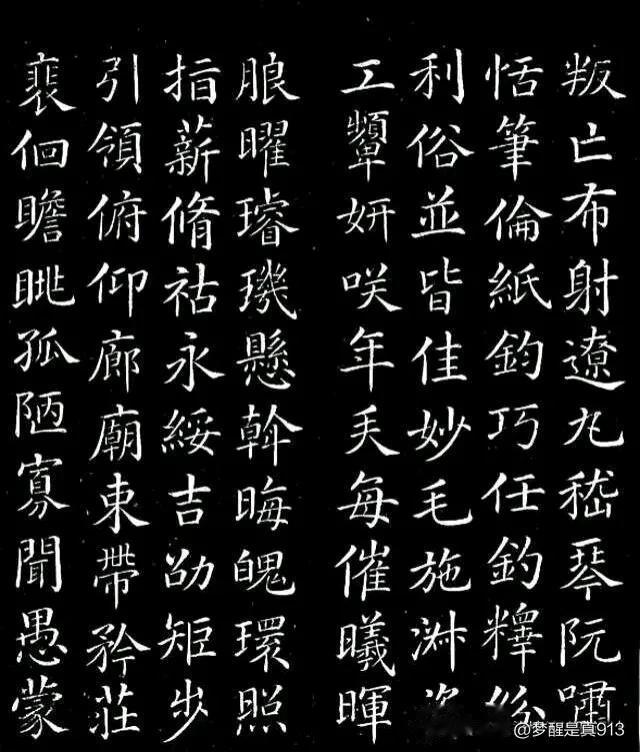 叛亡布射遼丸嵇琴阮嘯
恬筆倫紙鈞巧任釣釋紛
利俗並皆佳妙毛施淑姿
工顰妍咲年矢每催曦暉
朖曜璿璣懸斡晦魄環照
指薪脩祜永綏吉劭矩步
引領俯仰廊廟束帶矜莊
裵佪瞻眺孤陋寡聞愚蒙
@梦醒是真913